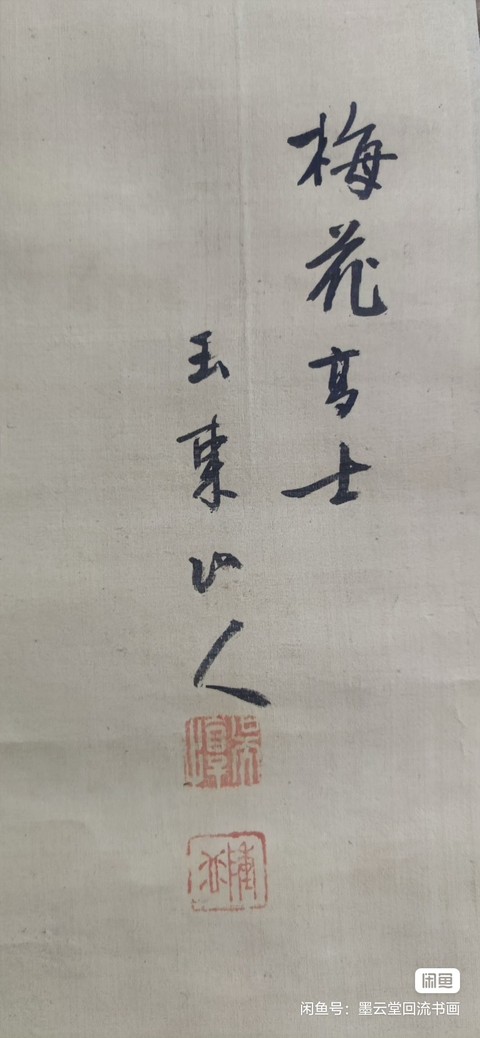 梅花高士
玉東山人
闲鱼
闲鱼号：墨云堂回流书画